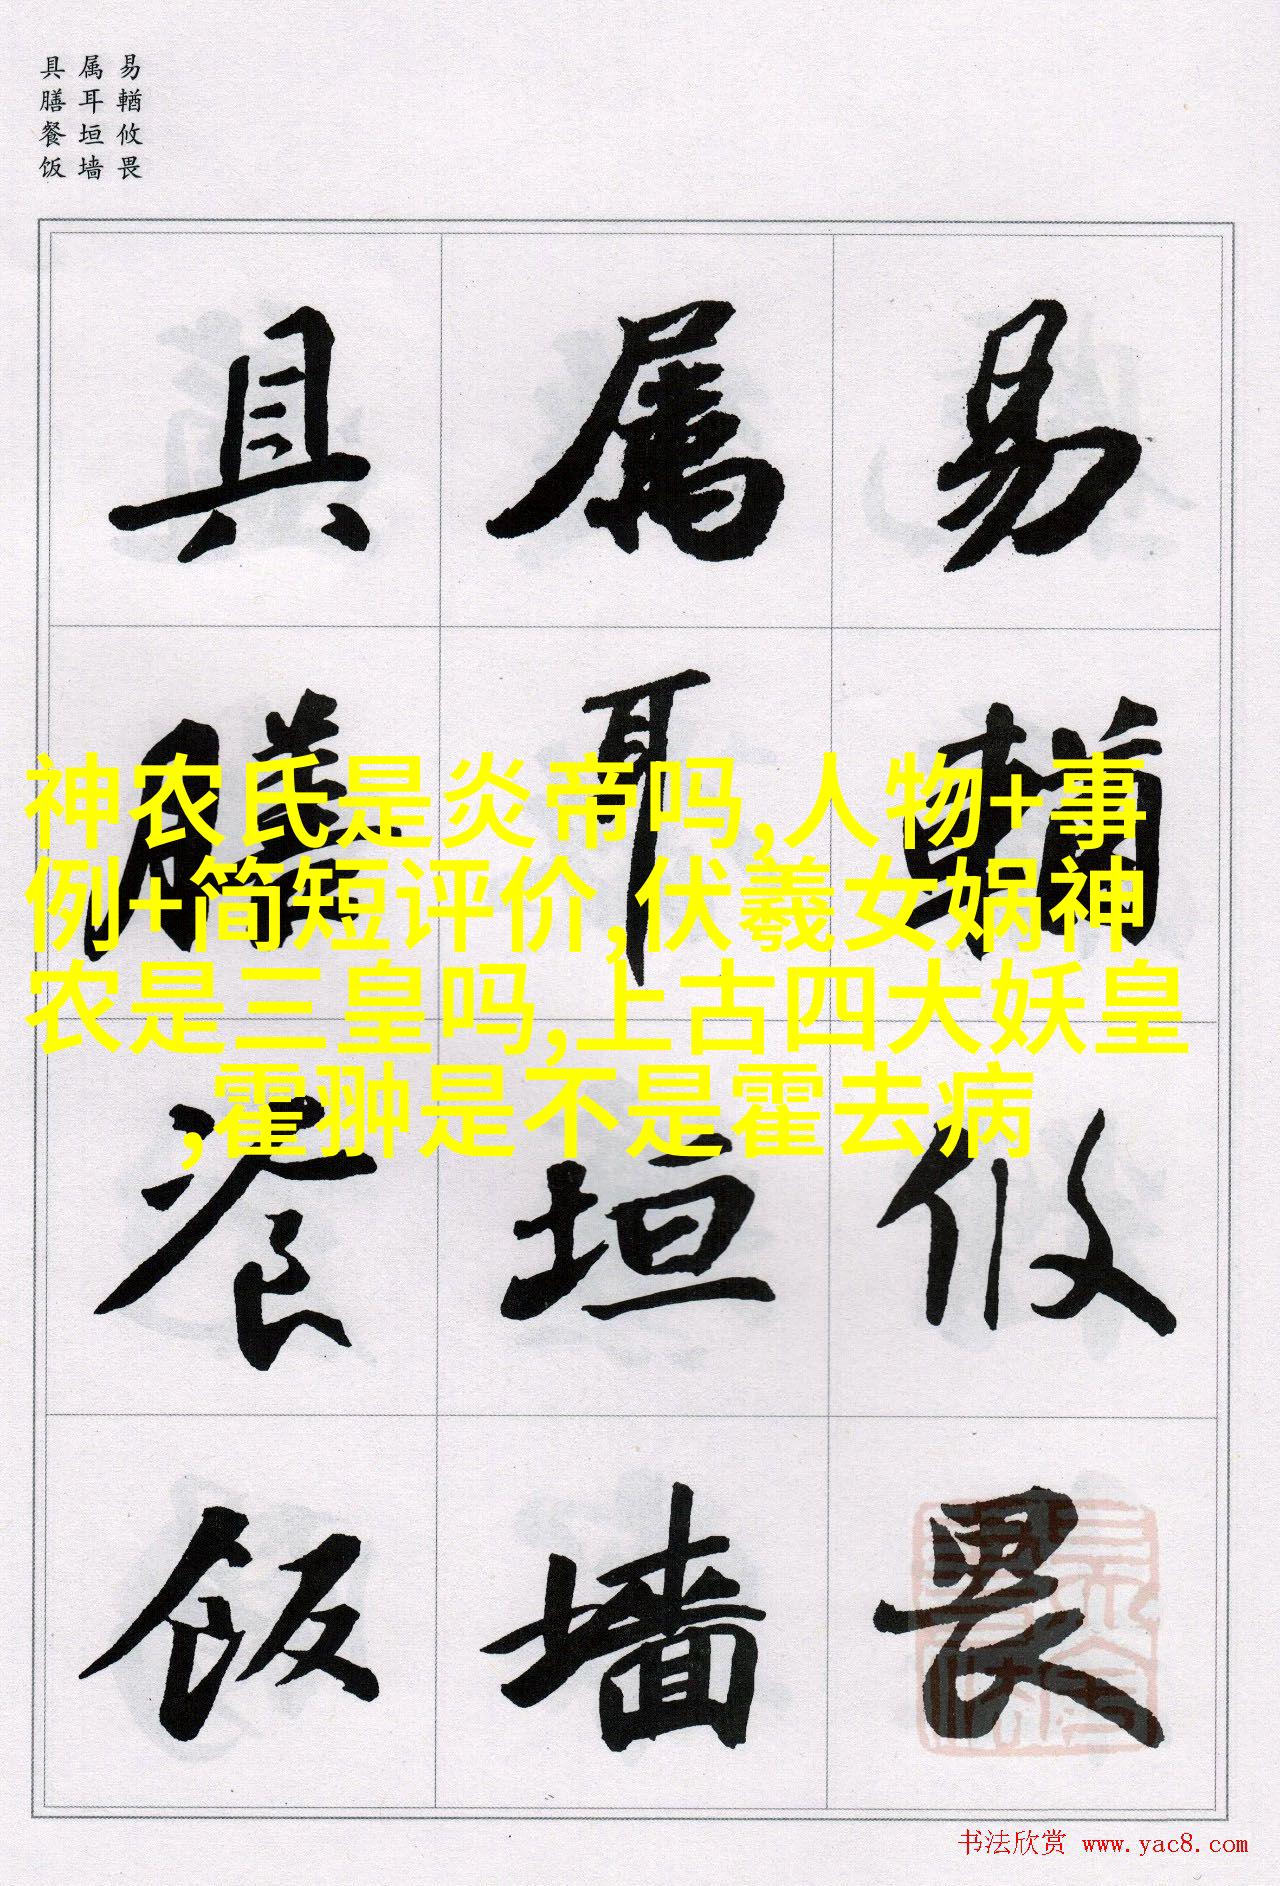 易輶攸畏
属耳垣墙
具膳餐饭
易輶攸畏
属耳垣墙
具膳餐饭
神农氏是炎帝吗,人物+事
例+简短评价,伏羲女娲神
农是三皇吗,上古四大妖皇
,霍翀是不是霍去病
书法欣赏 www.yac8.com